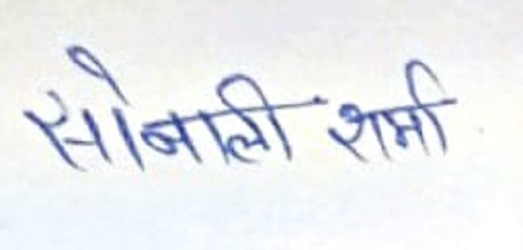 सोनाली शर्मा